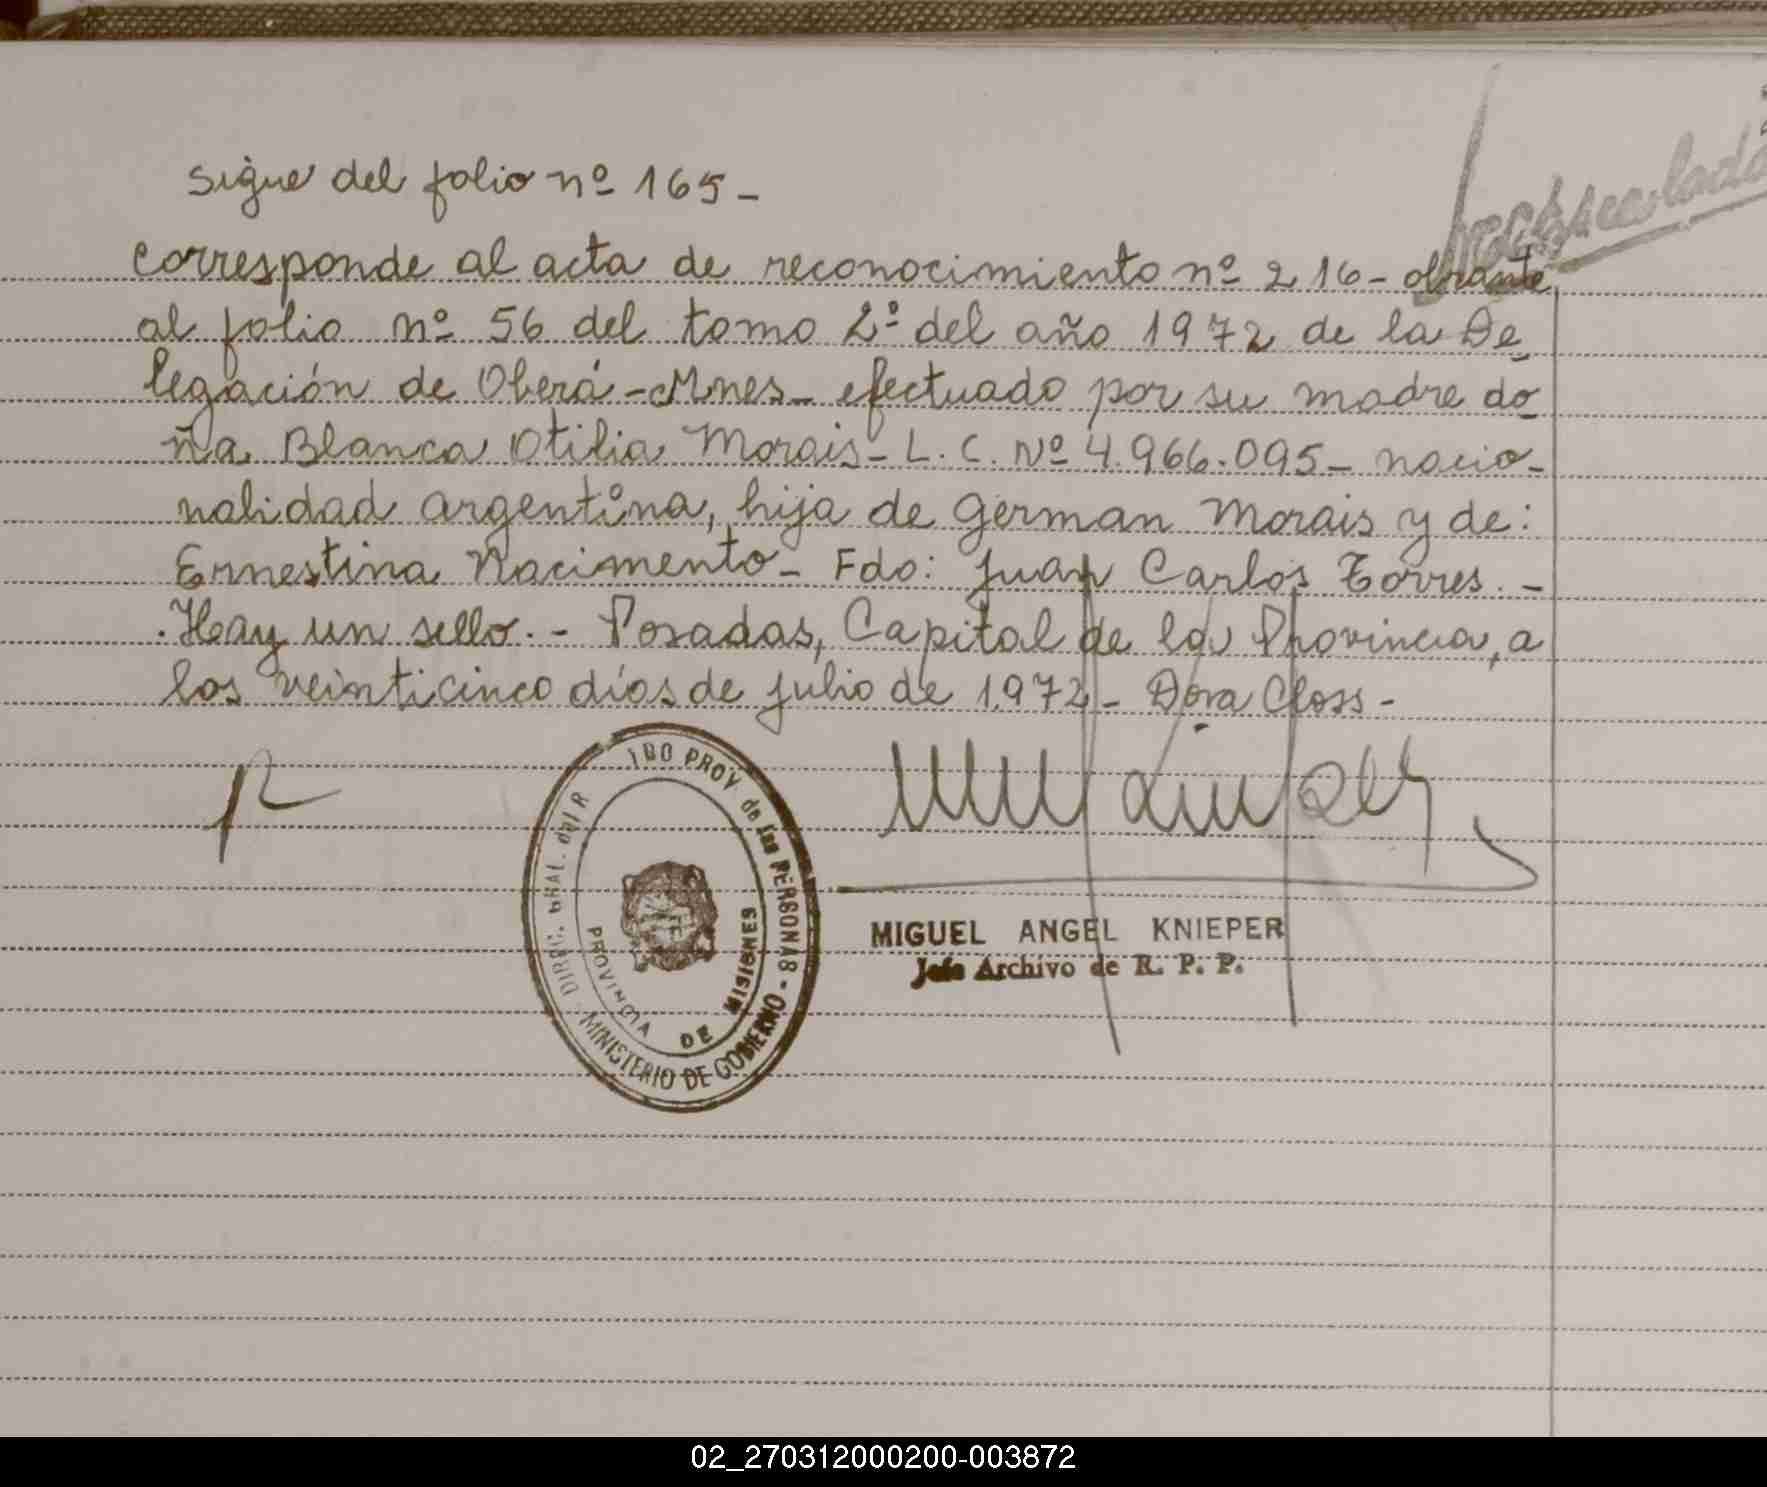 Sigue del folio nº 165-
Corresponde al acta de reconocimiento nº 216- obrante
al folio nº 56 del tomo 2º del año 1972 de la De-
legación de Oberá-Mnes- efectuado por su madre do-
ña Blanca Otilia Morais- L. C. Nº 4.966.095- nacio-
nalidad argentina, hija de German Morais y de:
Ernestina Nacimento- Fdo: Juan Carlos Torres.-
.Hay un sello.- Posadas, Capital de la Provincia, a
los veinticinco días de julio de 1972- Dora Closs-
DIREC. GRAL. del R PROV de las PERSONAS -
MINISTERIO DE GOBIERNO
PROVINCIA DE MISIONES
MIGUEL ANGEL KNIEPER
Jefe Archivo de R. P. P.
02_270312000200-003872